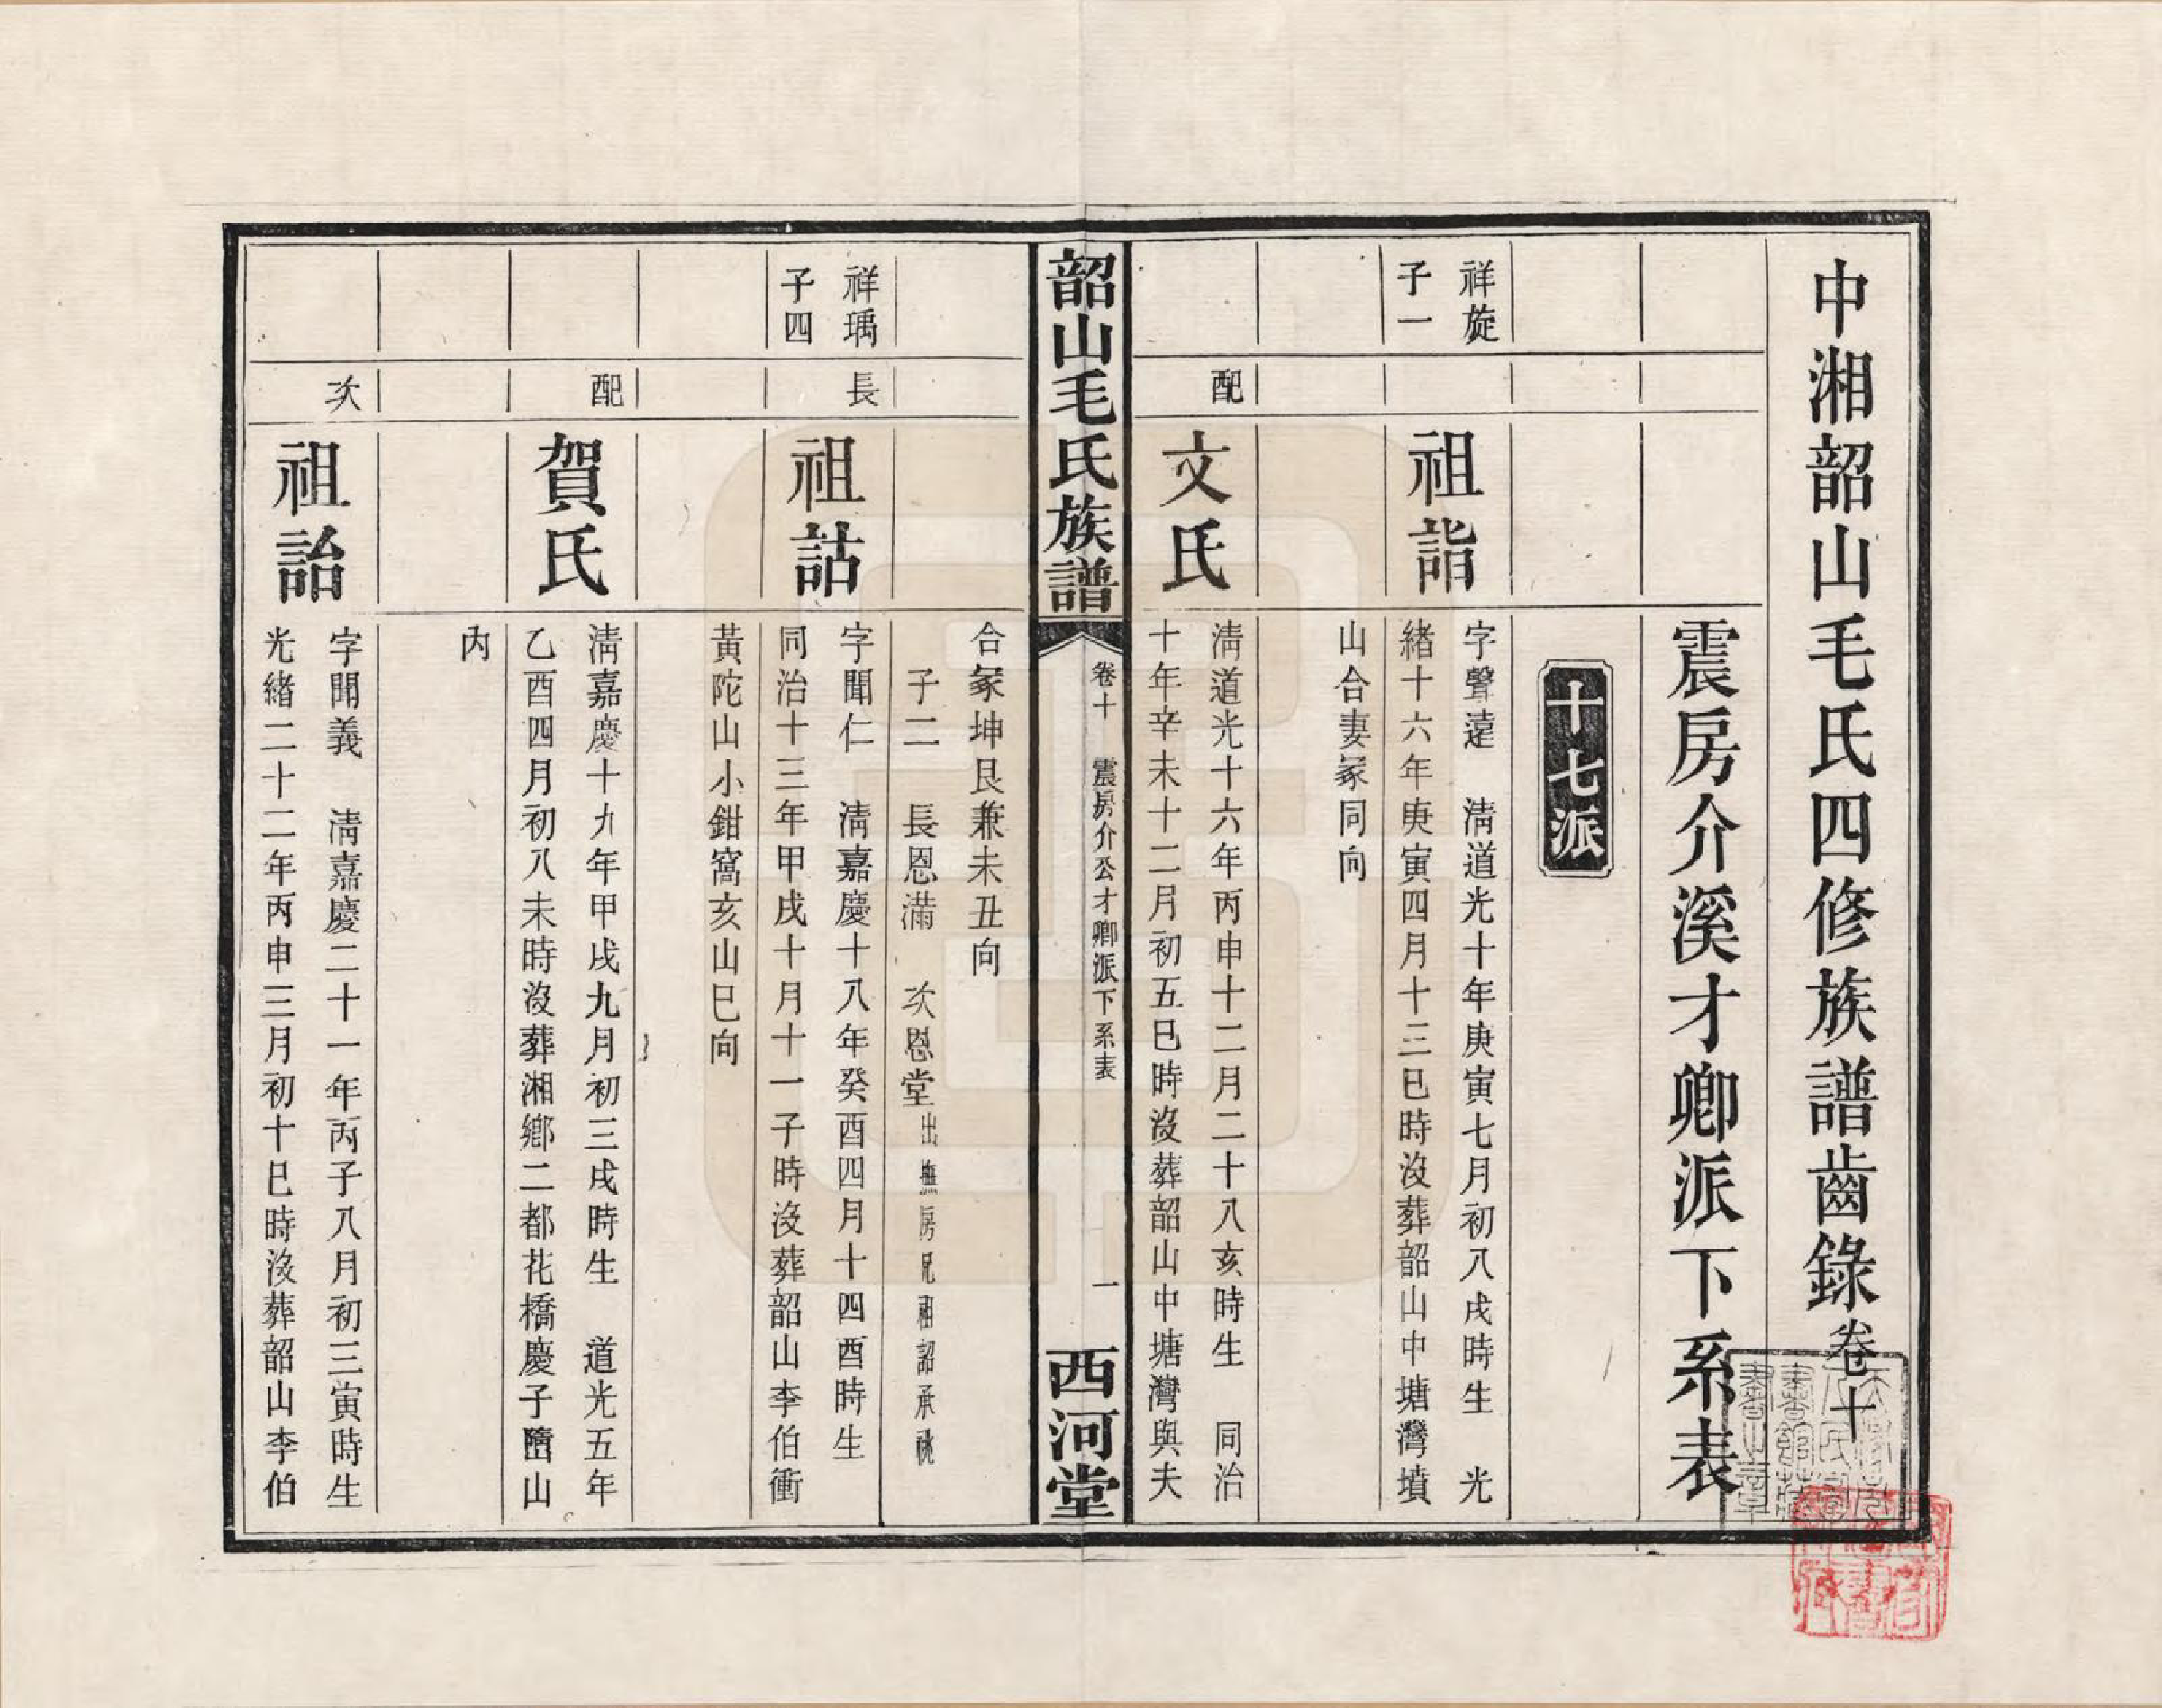 中湘韶山毛氏四修族譜齒錄卷十
震房介溪才卿派下系表
十七派
祥旋
子一
祖詣
字聲遠　清道光十年庚寅七月初八戌時生　光
緒十六年庚寅四月十三巳時沒葬韶山中塘灣墳
山合妻冢同向
配
文氏
清道光十六年丙申十二月二十八亥時生　同治
十年辛未十二月初五巳時沒葬韶山中塘灣與夫
韶山毛氏族譜
卷十　震房介公才卿派下系表
一
西河堂
合冢坤艮兼未丑向
子二　長恩滿　次恩堂出撫房兄祖詔承祧
祥瑀
子四
長
祖詁
字聞仁　清嘉慶十八年癸酉四月十四酉時生
同治十三年甲戌十月十一子時沒葬韶山李伯衝
黃陀山小鉗窩亥山巳向
配
賀氏
清嘉慶十九年甲戌九月初三戌時生　道光五年
乙酉四月初八未時沒葬湘鄉二都花橋慶子嶞山
內
次
祖詒
字開義　清嘉慶二十一年丙子八月初三寅時生
光緒二十二年丙申三月初十巳時沒葬韶山李伯